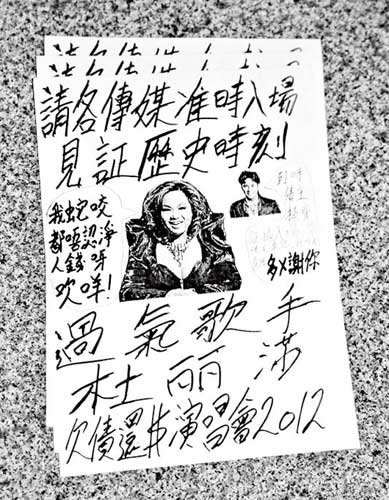 請各傳媒准時入場
見証歷史時刻
我蛇咬
都唔認淨
人錢呀
吹咩!
多X謝你
過氣歌手
杜麗滿
欠債還$演唱會2012